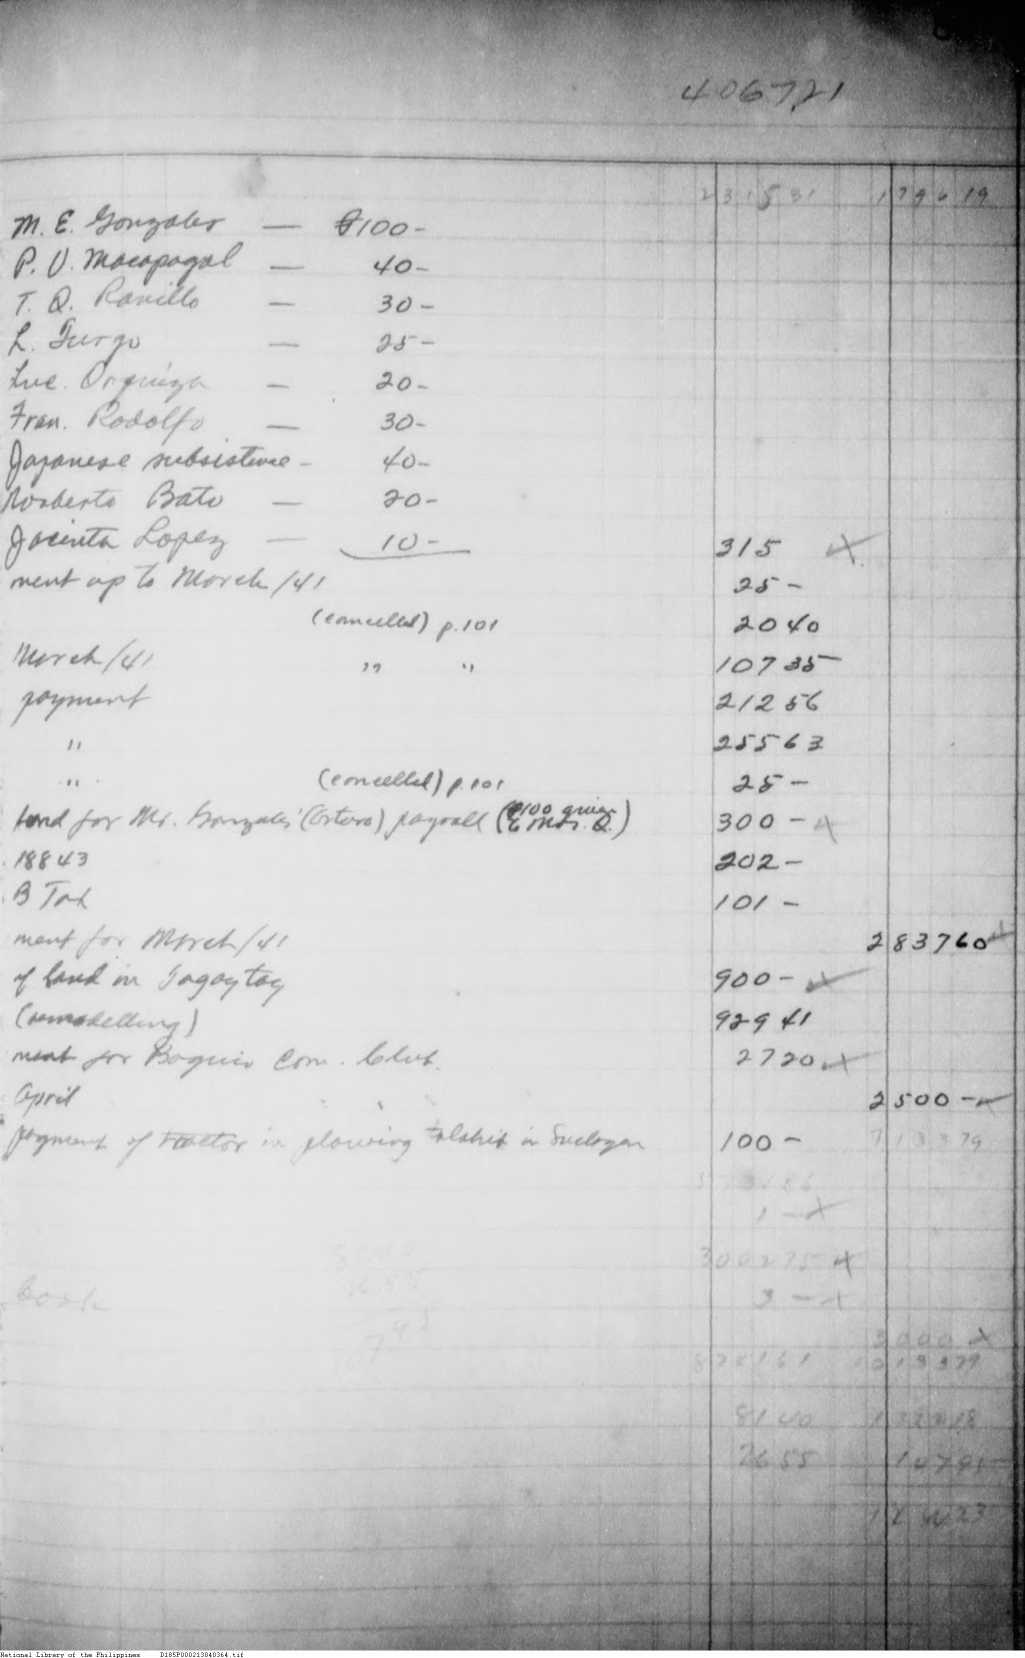 406721
231531 179619
M. E. Gonzales — ₱100-
P. V. Macapagal — 40-
T. Q. Ranillo — 30-
L. Turgo — 25-
Luc. Orquiza — 20-
Fran. Rodolfo — 30-
Japanese subsistence - 40-
Norberto Bato — 20-
Jacinta Lopez — 10- 315
ment up to March/41 25-
(cancelled) p.101 2040
March/41 " " 10735
payment 21256
" 25563
" (cancelled) p.101 25-
for Mr. Gonzales' (Arturo) payroll (₱100 given to Mrs. Q.) 300-
18843 202-
B Tax 101-
ment for March/41 283760
of land in Tagaytay 900-
(remodelling) 92941
ment for Baguio Com. Club. 2720
April 2500-
payment of tractor in plowing in 100- 713379
1-
300275
book 3-
3000
1013379
8140
2655
National Library of the Philippines D185P000213040364.tif